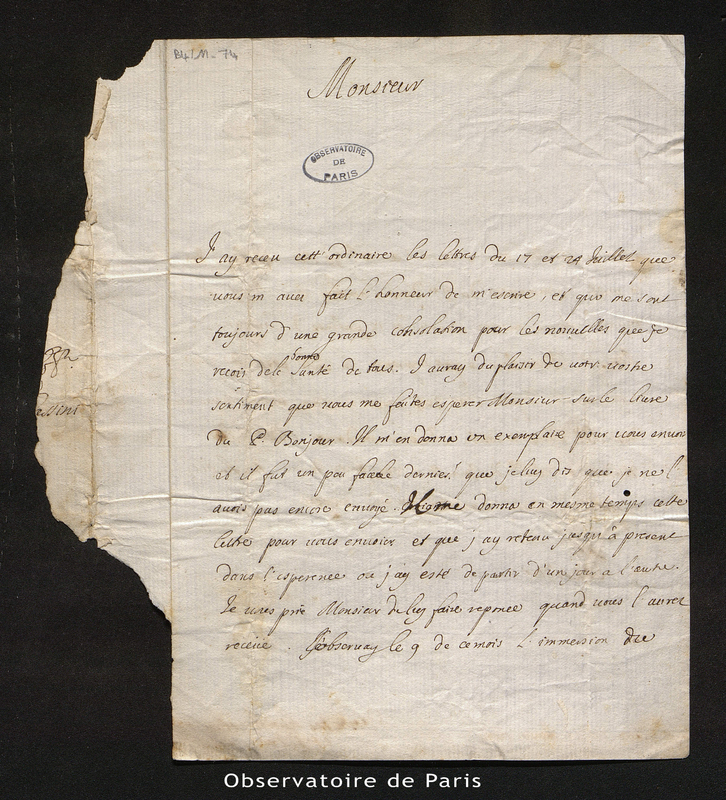 B4/11-74
Monsieur
OBSERVATOIRE
DE
PARIS
J ay receu cett' ordinaire les lettres du 17 et 24 Juillet que
vous m avez fait l'honneur de m'escrire, et qui me sont
toujours d'une grande consolation pour les nouvelles que je
recois de la bonne Santé de tous. J auray du plaisir de votre
sentiment que vous me faites esperer Monsieur sur le livre
du P. Bonjour. Il m'en donna un exemplaire pour vous envoi
et il fut un peu faché dernier! que je luy dis que je ne l'
avois pas encore envoyé. Il me donna en mesme temps cette
lettre pour vous envoier et que j ay retenu jusqu'à present
dans l'esperence ou j'ay esté de partir d'un jour a l'autre.
Je vous prie Monsieur de luy faire reponce quand vous l'aurez
receüe. J'observay le 9 de ce mois l'immersion du
assini
Observatoire de Paris